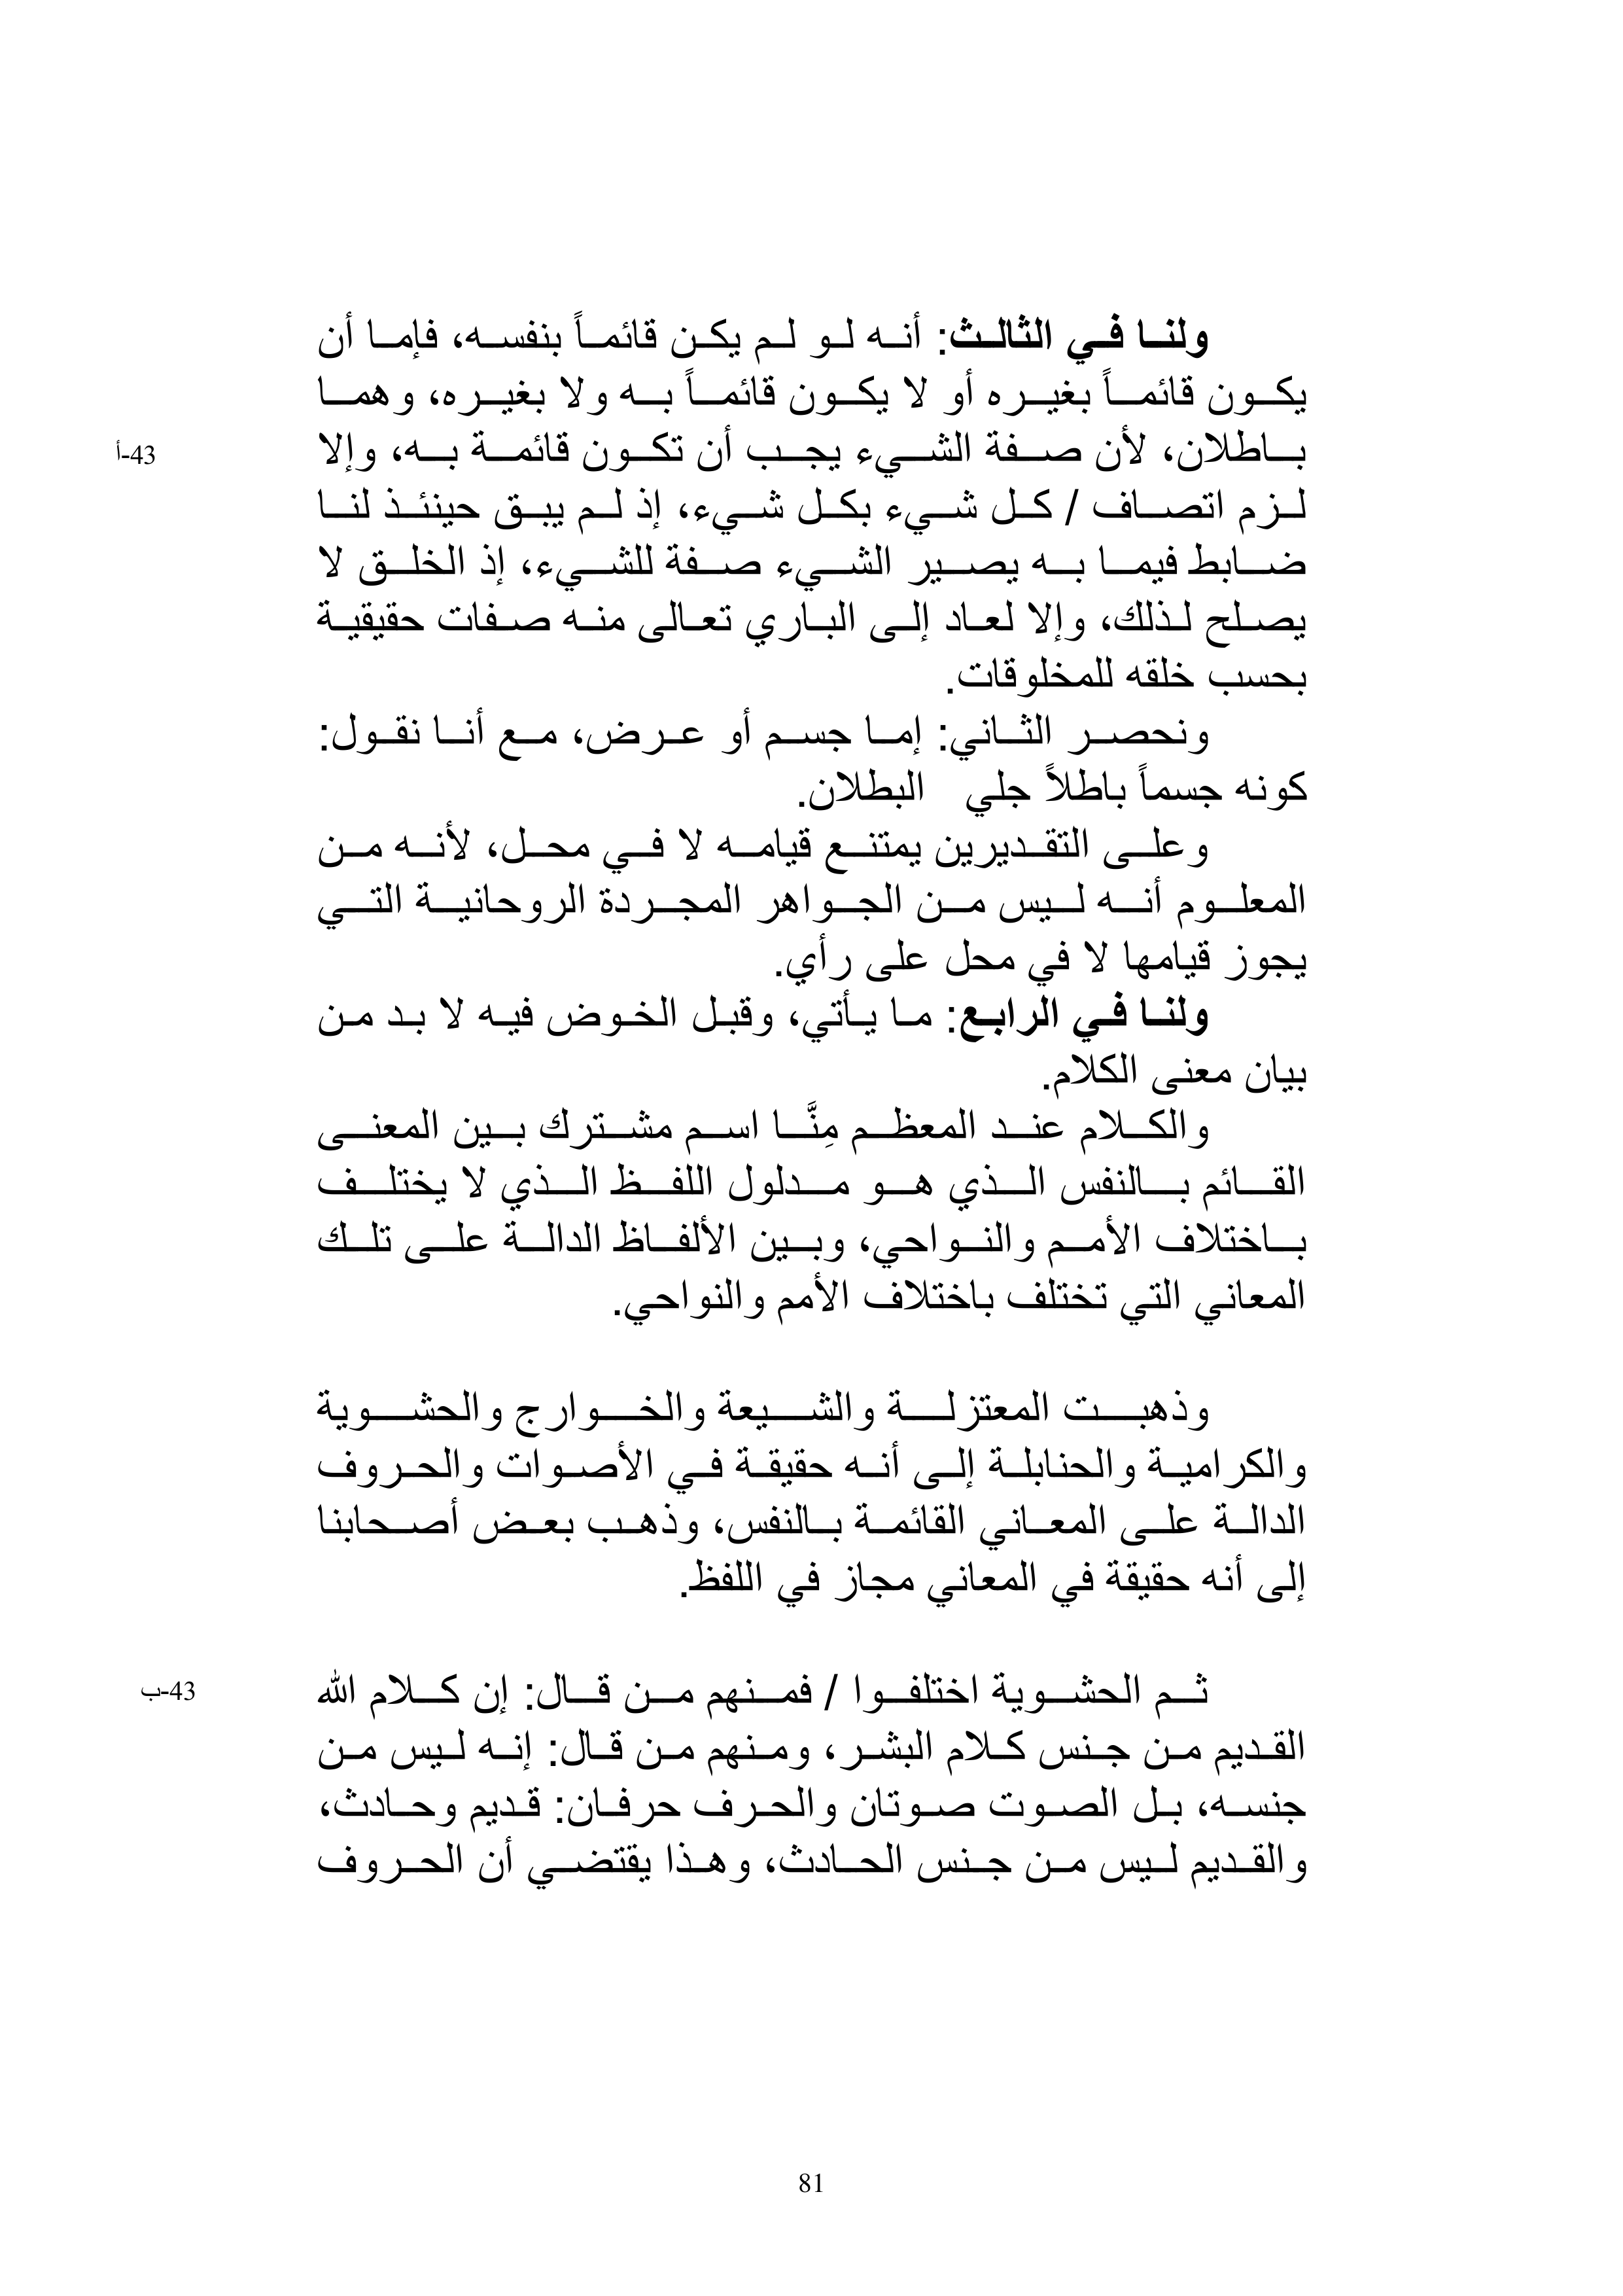 ولنا في الثالث: أنه لو لم يكن قائماً بنفسه، فإما أن
يكون قائماً بغيره أو لا يكون قائماً به ولا بغيره، وهما
باطلان، لأن صفة الشيء يجب أن تكون قائمة به، وإلا
43-أ
لزم اتصاف / كل شيء بكل شيء، إذ لم يبق حينئذ لنا
ضابط فيما به يصير الشيء صفة للشيء، إذ الخلق لا
يصلح لذلك، وإلا لعاد إلى الباري تعالى منه صفات حقيقية
بحسب خلقه للمخلوقات.
ونحصر الثاني: إما جسم أو عرض، مع أنا نقول:
كونه جسماً باطلاً جلي البطلان.
وعلى التقديرين يمتنع قيامه لا في محل، لأنه من
المعلوم أنه ليس من الجواهر المجردة الروحانية التي
يجوز قيامها لا في محل على رأي.
ولنا في الرابع: ما يأتي، وقبل الخوض فيه لا بد من
بيان معنى الكلام.
والكلام عند المعظم مِنَّا اسم مشترك بين المعنى
القائم بالنفس الذي هو مدلول اللفظ الذي لا يختلف
باختلاف الأمم والنواحي، وبين الألفاظ الدالة على تلك
المعاني التي تختلف باختلاف الأمم والنواحي.
وذهبت المعتزلة والشيعة والخوارج والحشوية
والكرامية والحنابلة إلى أنه حقيقة في الأصوات والحروف
الدالة على المعاني القائمة بالنفس، وذهب بعض أصحابنا
إلى أنه حقيقة في المعاني مجاز في اللفظ.
ثم الحشوية اختلفوا / فمنهم من قال: إن كلام الله
43-ب
القديم من جنس كلام البشر، ومنهم من قال: إنه ليس من
جنسه، بل الصوت صوتان والحرف حرفان: قديم وحادث،
والقديم ليس من جنس الحادث، وهذا يقتضي أن الحروف
81